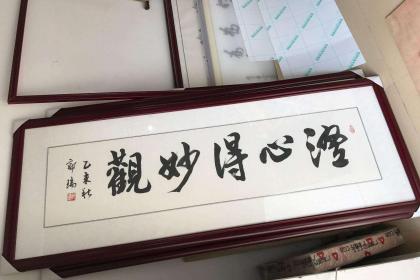 澄心得妙觀
乙未秋